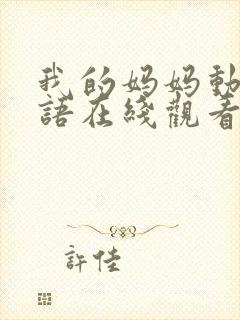 我的妈妈動
語在綫觀看
許佳